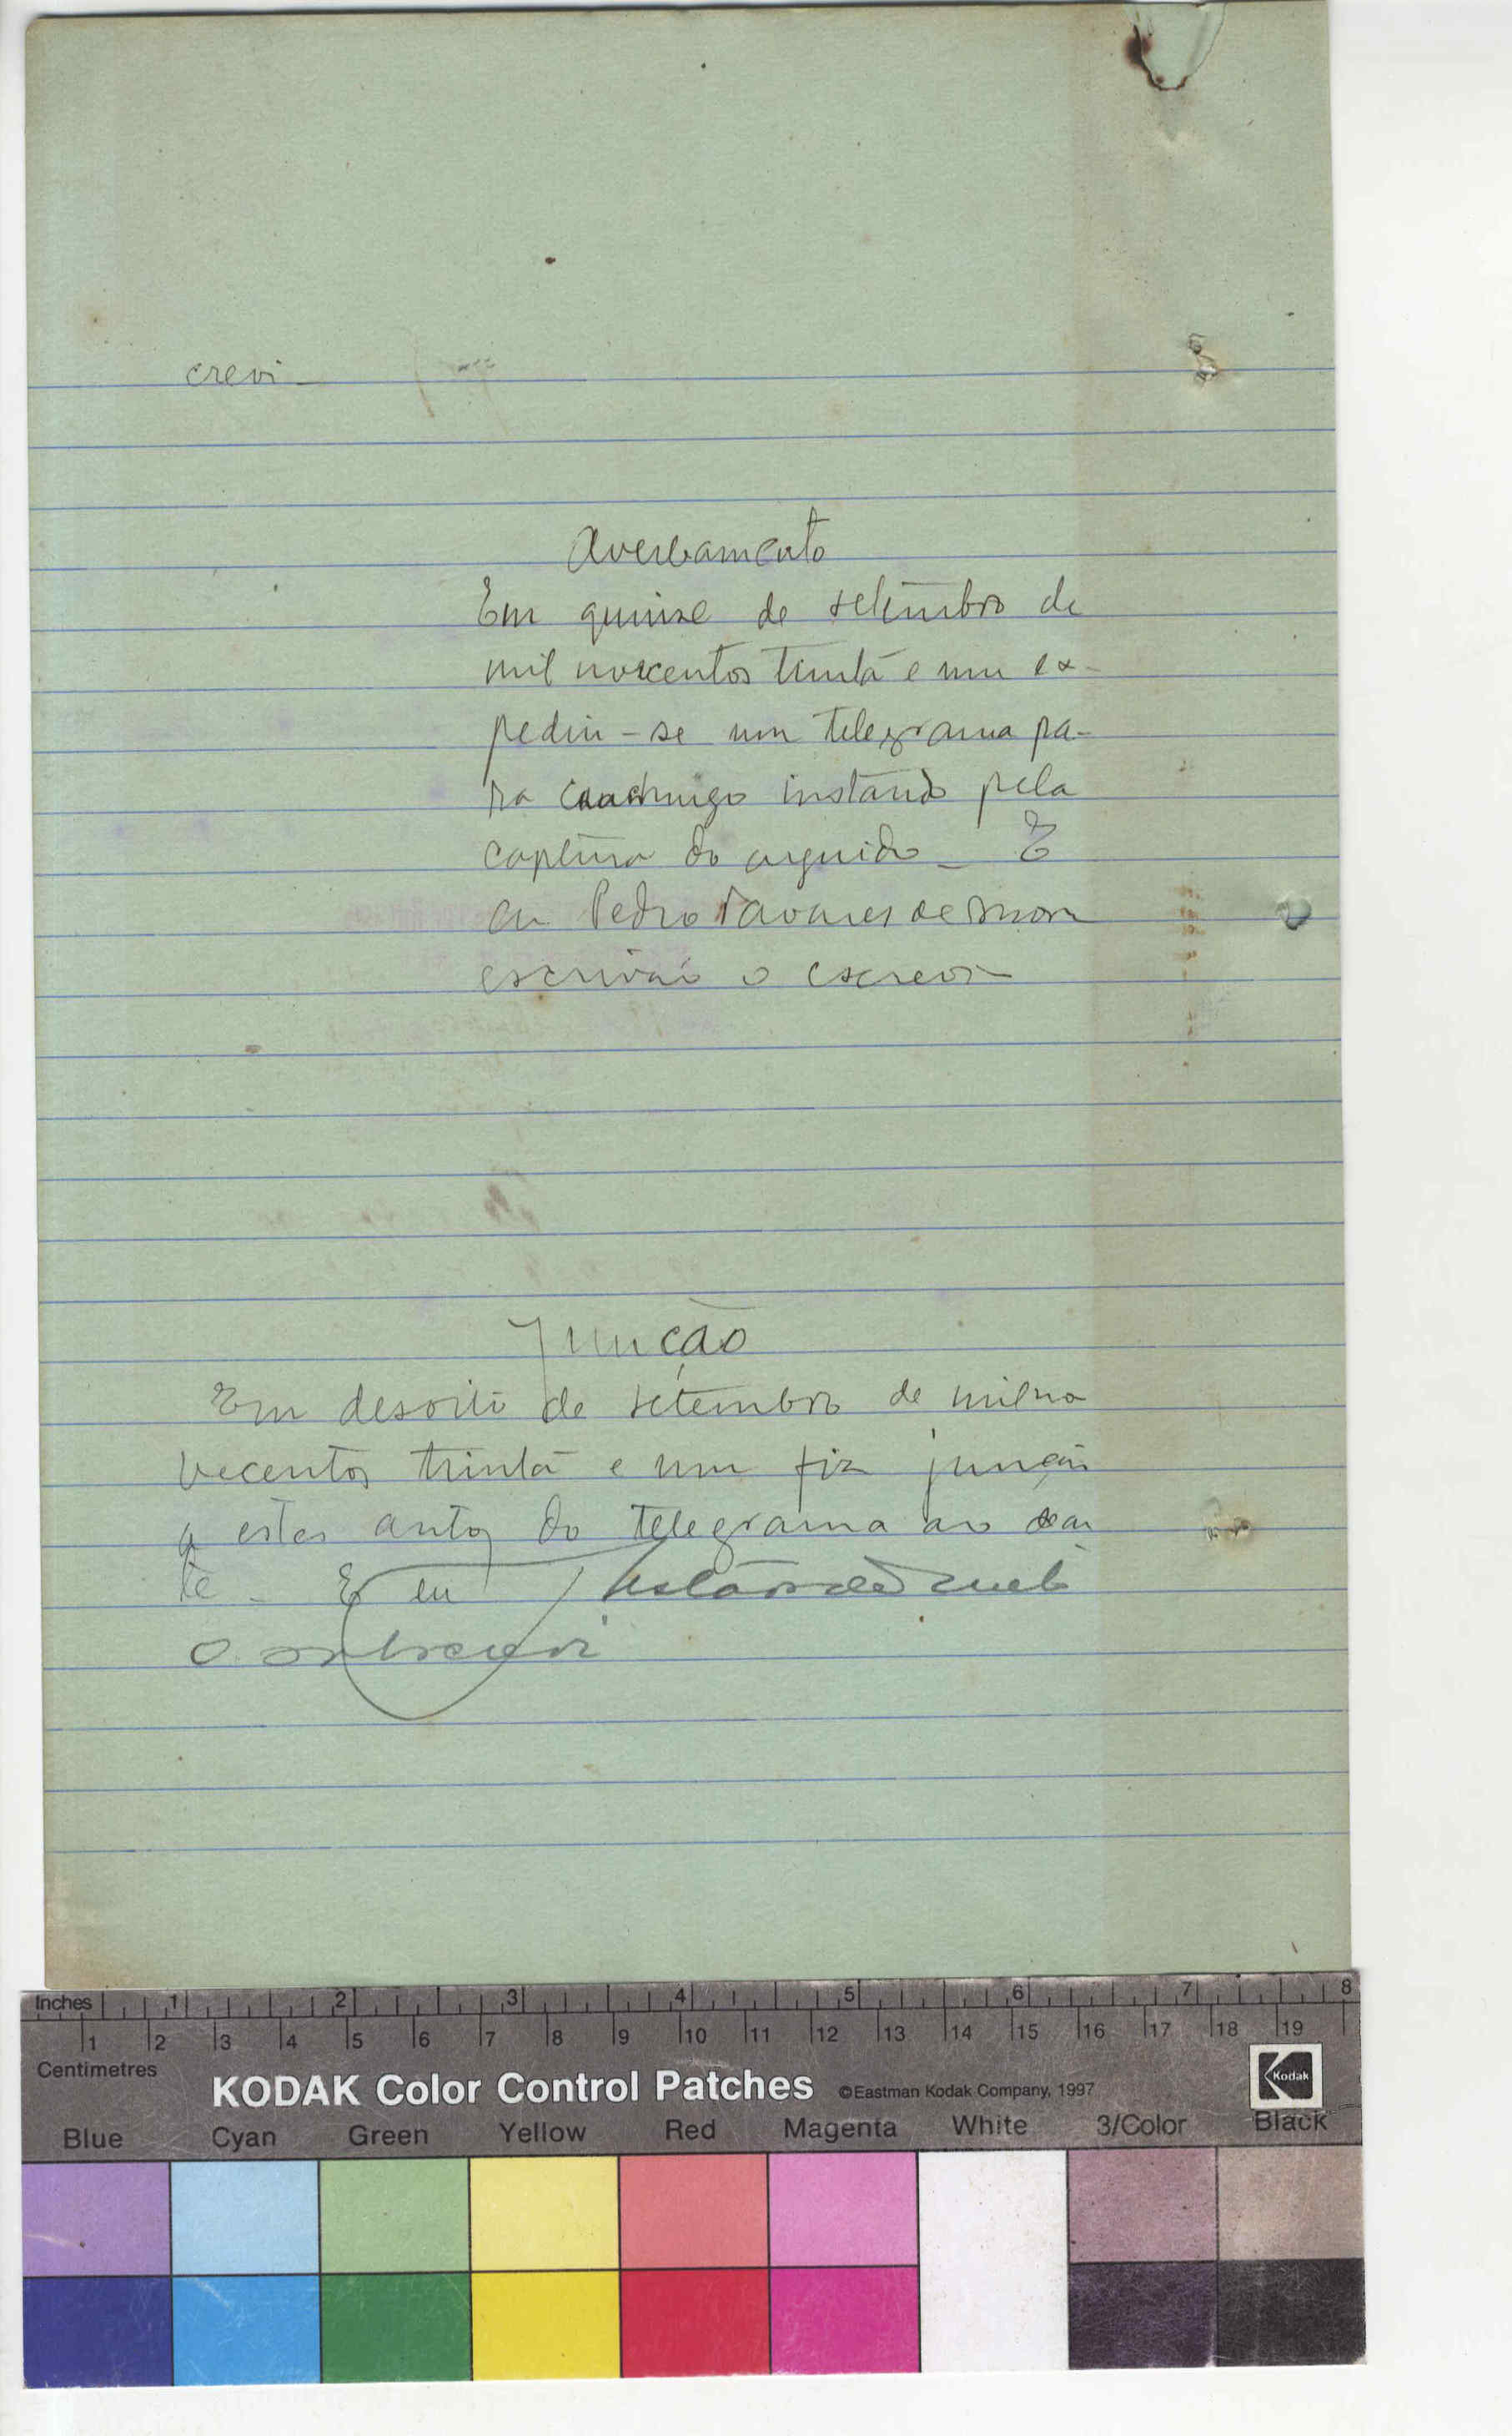 crevi –
Averbamento
Em quinse de setembro de
mil novecentos trinta e um ex-
pediu-se um telegrama pa-
ra instando pela
captura do arguido – E
eu Pedro Tavares de
escrivão o escrevi –
Junção
Em desoito de setembro de mil no
vecentos trinta e um fiz junção
a estes autos do telegrama ao
te – E eu
o subscrevi
Inches 1 2 3 4 5 6 7 8
1 2 3 4 5 6 7 8 9 10 11 12 13 14 15 16 17 18 19
Centimetres
KODAK Color Control Patches ©Eastman Kodak Company, 1997 Kodak
Blue Cyan Green Yellow Red Magenta White 3/Color Black